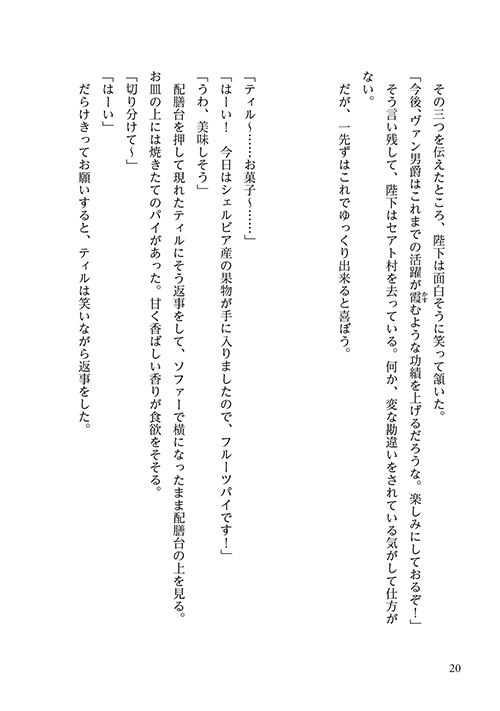 その三つを伝えたところ、陛下は面白そうに笑って頷いた。
「今後、ヴァン男爵はこれまでの活躍が霞むような功績を上げるだろうな。楽しみにしておるぞ！」
そう言い残して、陛下はセアト村を去っている。何か、変な勘違いをされている気がして仕方が
ない。
だが、一先ずはこれでゆっくり出来ると喜ぼう。
「ティル～……お菓子～……」
「はーい！　今日はシェルビア産の果物が手に入りましたので、フルーツパイです！」
「うわ、美味しそう」
配膳台を押して現れたティルにそう返事をして、ソファーで横になったまま配膳台の上を見る。
お皿の上には焼きたてのパイがあった。甘く香ばしい香りが食欲をそそる。
「切り分けて～」
「はーい」
だらけきってお願いすると、ティルは笑いながら返事をした。
20